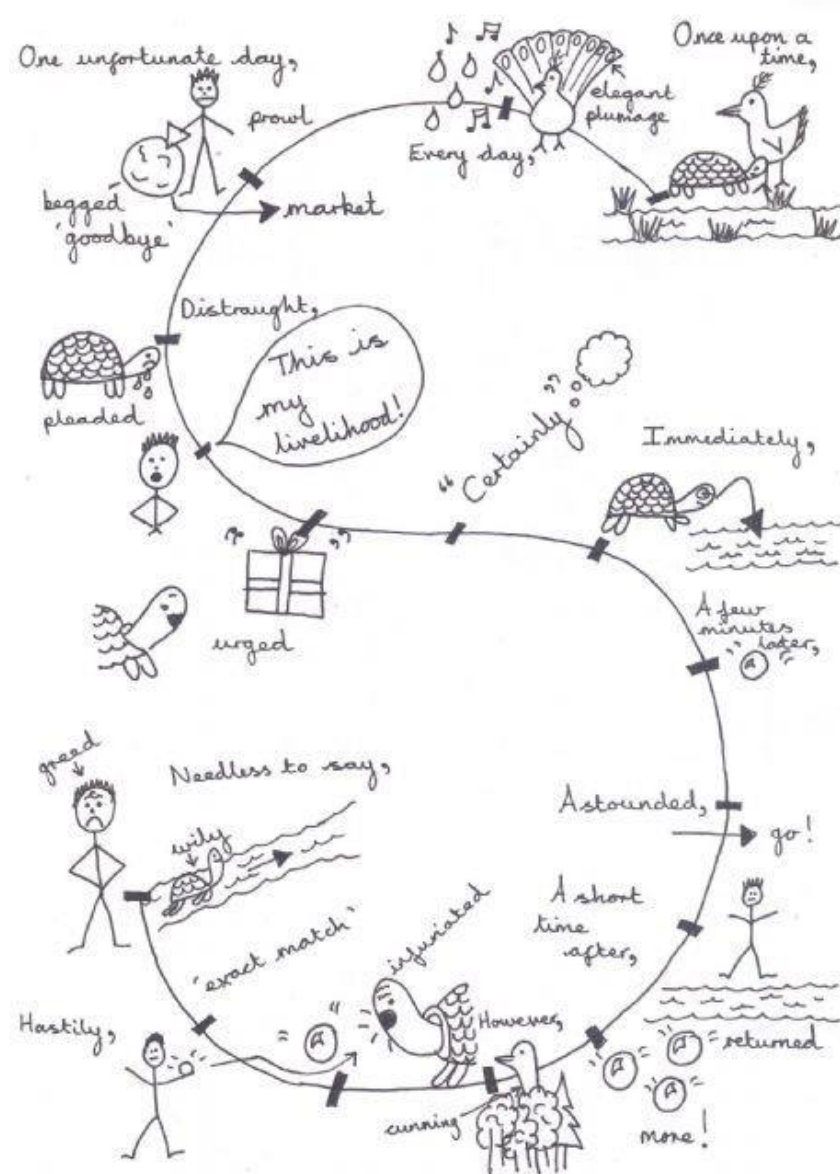 Once upon a
time,
elegant
plumage
Every day,
One unfortunate day,
prowl
begged
'goodbye'
market
Distraught,
pleaded
This is
my
livelihood!
" "
urged
"Certainly"
Immediately,
A few
minutes
later,
Astounded,
go!
A short
time
after,
returned
more!
However,
cunning
infuriated
Hastily,
= "
'exact match'
Needless to say,
wily
greed